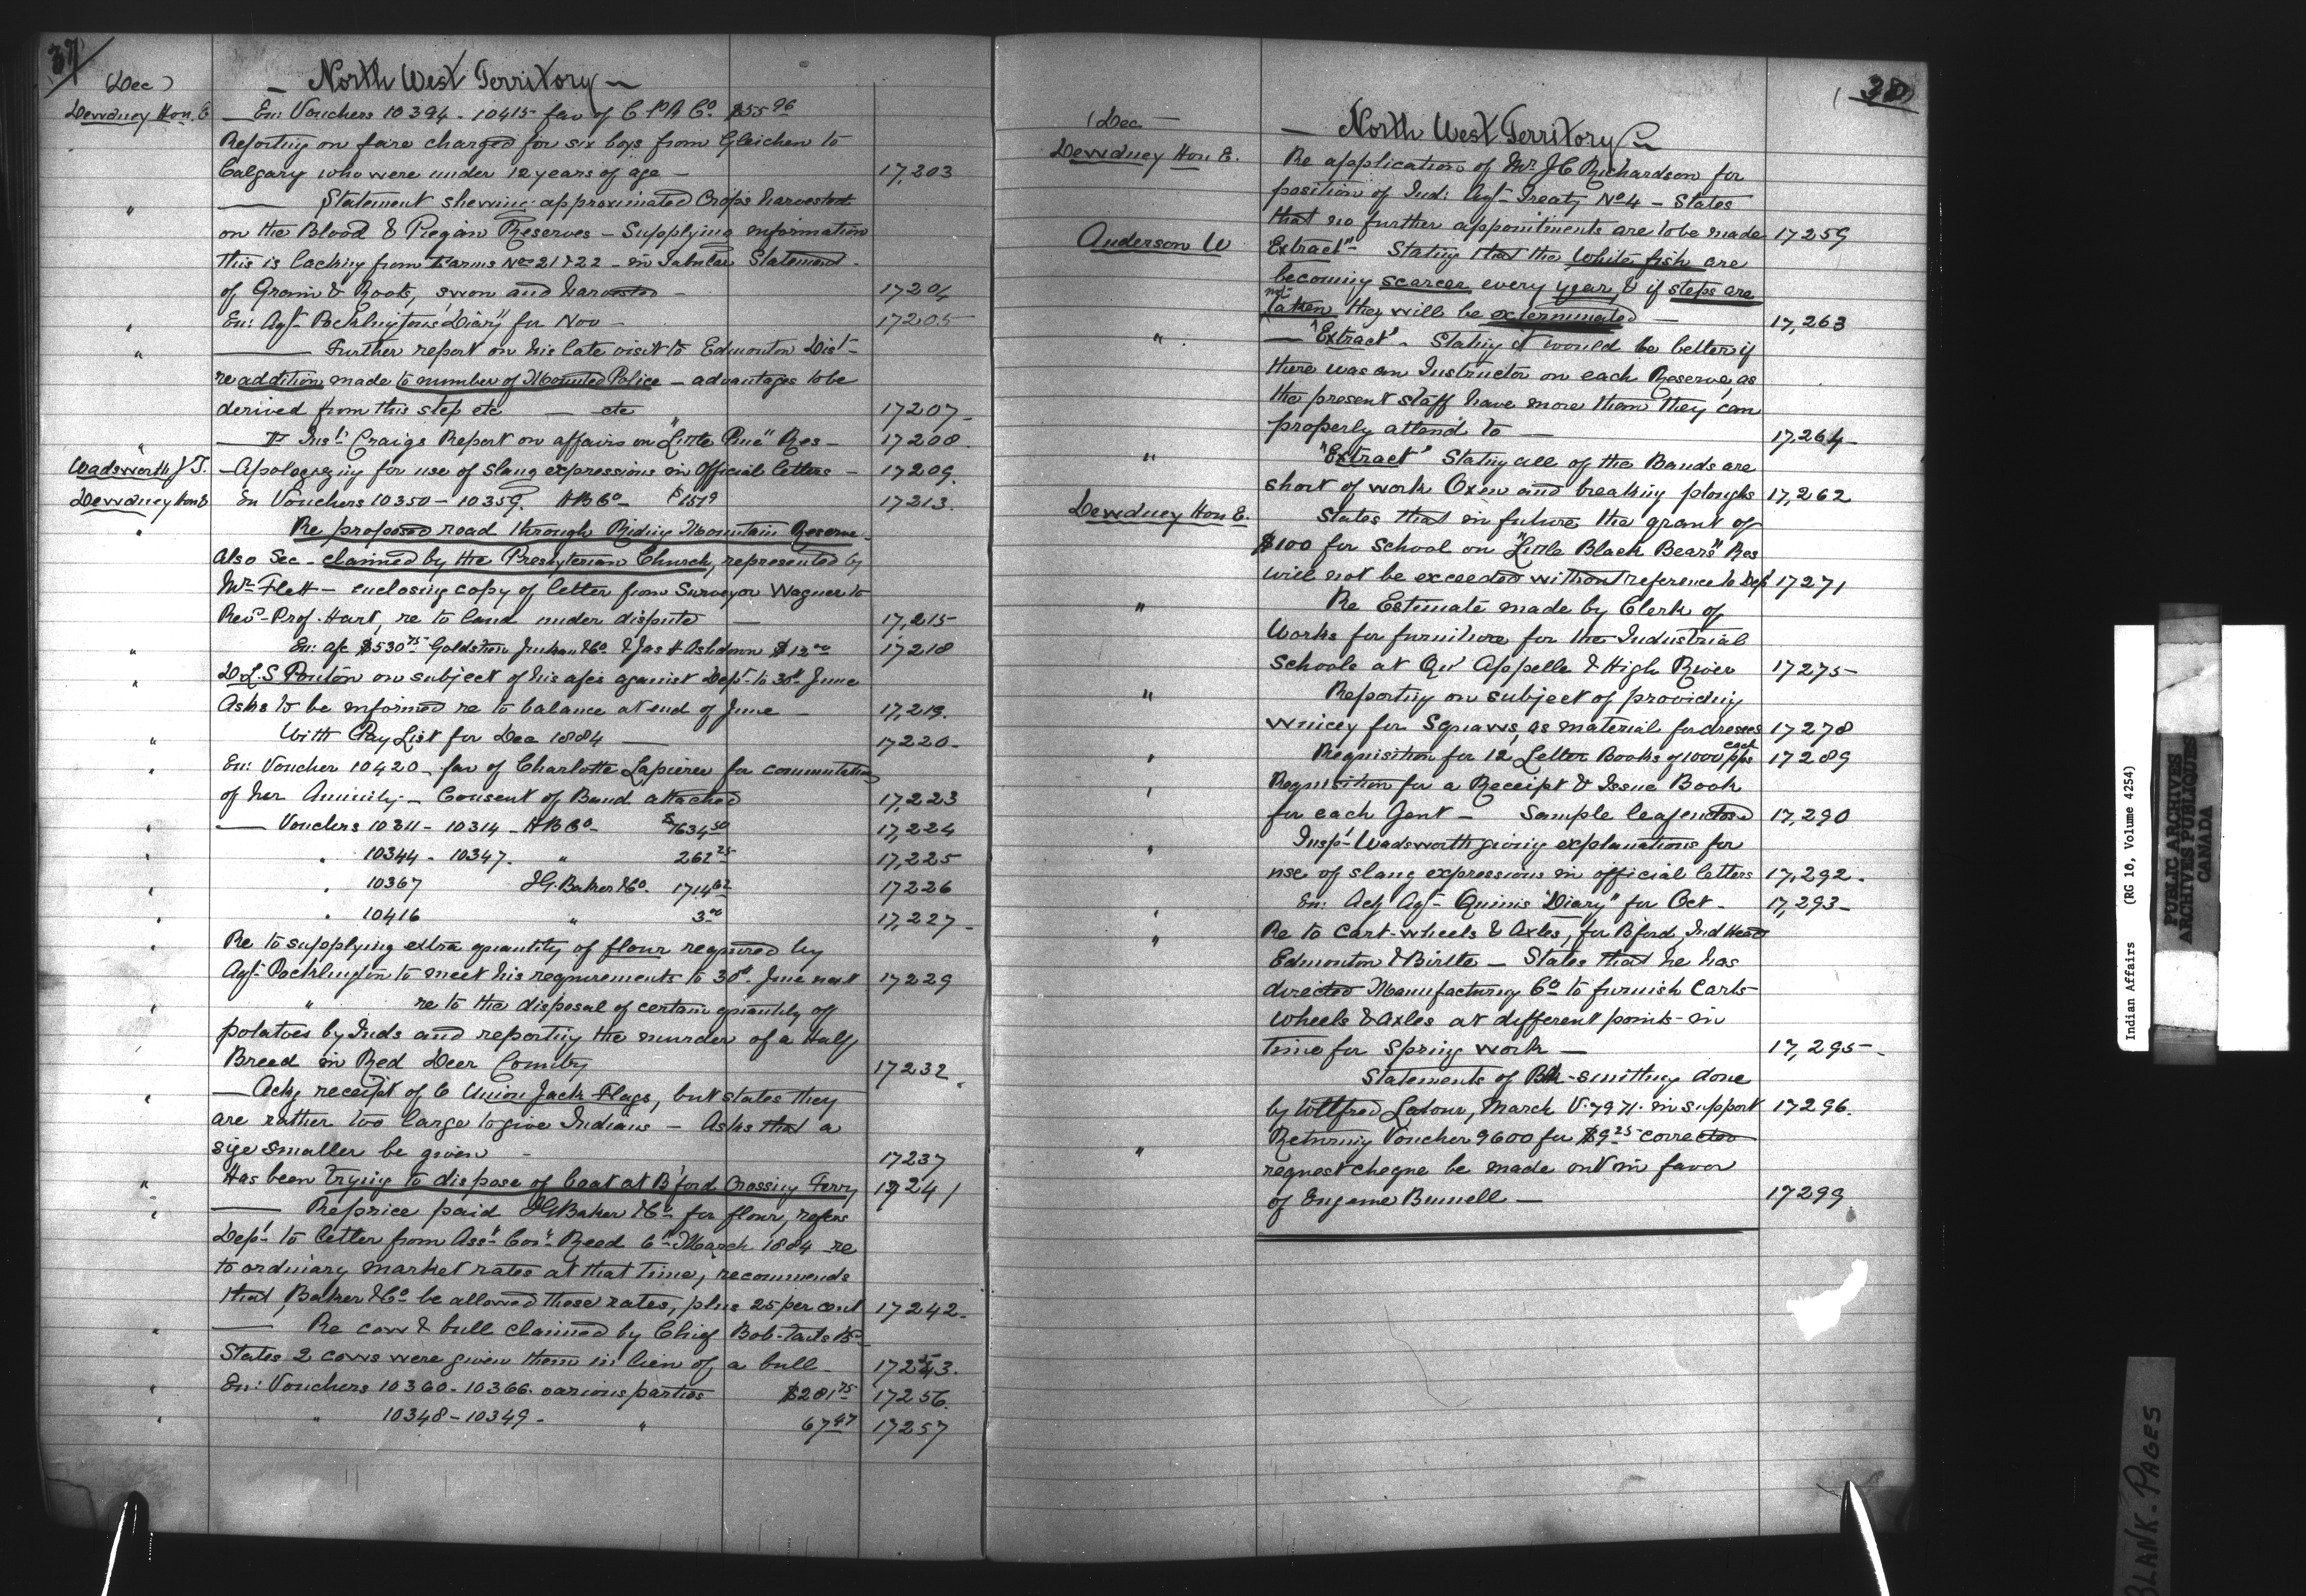 37
(Dec)
— North West Territory —
Dewdney Hon. E — En: Vouchers 10394 - 10415 fav of C P R Co. $55 96
Reporting on fare charged for six boys from Gleichen to
Calgary who were under 12 years of age — 17,203
" — Statement shewing approximated Crops harvested
on the Blood & Piegan Reserves — Supplying information
this is lacking from Farms Nos 21 & 22 — in Tabular Statement
of Grain & Roots, sown and harvested — 17204
" En: Agt. Pocklington's "Diary" for Nov — 17205
" — Further report on his late visit to Edmonton Dist —
re addition made to number of Mounted Police — advantages to be
derived from this step etc — etc 17207 —
" — Inst. Craigs Report on affairs on "Little Pine" Res — 17208.
Wadsworth J.T. — Apologizing for use of slang expressions in official letters — 17209.
Dewdney Hon E En Vouchers 10350 — 10359. H B Co — $15 79 17213.
" Re proposed road through Riding Mountain Reserve.
Also Sec — claimed by the Presbyterian Church, represented by
Mr. Flett — enclosing copy of letter from Surveyor Wagner to
Revd. Prof. Hart, re to land under dispute — 17,215
" En: a/c $530 75 Goldstein & Co & Jas H Ashdown $12 00 17218
" on subject of his a/cs against Dept. to 30th June
Asks to be informed re to balance at end of June — 17,219.
" With Pay List for Dec 1884 — 17220 —
" En: Voucher 10420 — fav of Charlotte Lapierre for commutation
of her Annuity — Consent of Band attached 17,223
" — Vouchers 10311 - 10314 — H B Co — $7634 50 17,224
" " 10344 - 10347. " 262 25 17,225
" " 10367 I G. Baker & Co. 1714 62 17226
" " 10416 " 3 00 17,227 —
" Re to supplying extra quantity of flour required by
Agt. Pocklington to meet his requirements to 30th June next 17229
" " re to the disposal of certain quantity of
potatoes by Inds and reporting the murder of a Half
Breed in Red Deer Country 17232.
" — Ackg receipt of 6 Union Jack Flags, but states they
are rather too large to give Indians — Asks that a
size smaller be given — 17237
" Has been trying to dispose of boat at B'ford Crossing Ferry 17241
" — Re price paid I G Baker & Co for flour, refers
Dept. to letter from Asst. Comr. Reed 6th March 1884 re
to ordinary market rates at that time, recommends
that Baker & Co be allowed those rates, plus 25 per cent 17242 —
" — Re cow & bull claimed by Chief Bob-Tails Bd —
States 2 cows were given them in lieu of a bull — 17243.
" En: Vouchers 10360 - 10366. various parties $281 75 17256.
" " 10348 - 10349 — " 67 47 17257
38
(Dec —
— North West Territory —
Dewdney Hon E. Re application of Mr. J C Richardson for
position of Ind: Agt. Treaty No 4 — States
that no further appointments are to be made 17259
Anderson W "Extract" — Stating that the White fish are
becoming scarcer every year, & if steps are
not taken they will be exterminated — 17,263
" — "Extract" — Stating it would be better if
there was an Instructor on each Reserve, as
the present staff have more than they can
properly attend to — 17,264 —
" "Extract" Stating all of the Bands are
short of work Oxen and breaking ploughs 17,262
Dewdney Hon E. States that in future the grant of
$100 for School on "Little Black Bear's" Res
will not be exceeded without reference to Dept 17271
" Re Estimate made by Clerk of
Works for furniture for the Industrial
Schools at Qu'Appelle & High River 17275 —
" Reporting on subject of providing
wincey for Squaws, as material for dresses 17278
" Requisition for 12 Letter Books of 1000 pps each 17289
" Requisition for a Receipt & Issue Book
for each Agent — Sample leaf enclosed 17,290
" Insp. Wadsworth giving explanations for
use of slang expressions in official letters 17,292.
En: Actg Agt. Quinn's "Diary" for Oct — 17,293 —
" Re to Cart-wheels & Axles, for B'ford, Ind Head
" Edmonton & Birtle — States that he has
directed Manufacturing Co to furnish Carts
Wheels & Axles at different points in
time for Spring work — 17,295 —
Statements of Blk-smithing done
by Wilfred Latour, March V. 7971. in support 17296.
Returning Voucher 9600 for $9 25 corrected
" request cheque be made out in favor
of Eugene Bunnell — 17299
Indian Affairs (RG 10, Volume 4254)
PUBLIC ARCHIVES
ARCHIVES PUBLIQUES
CANADA
BLANK PAGES